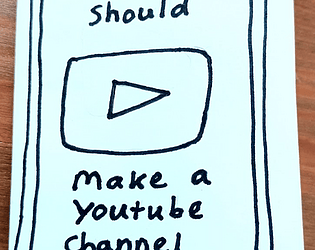 should
make a
Youtube
channel